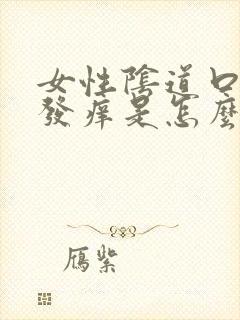 女性陰道口
發癢是怎麼
雁紫